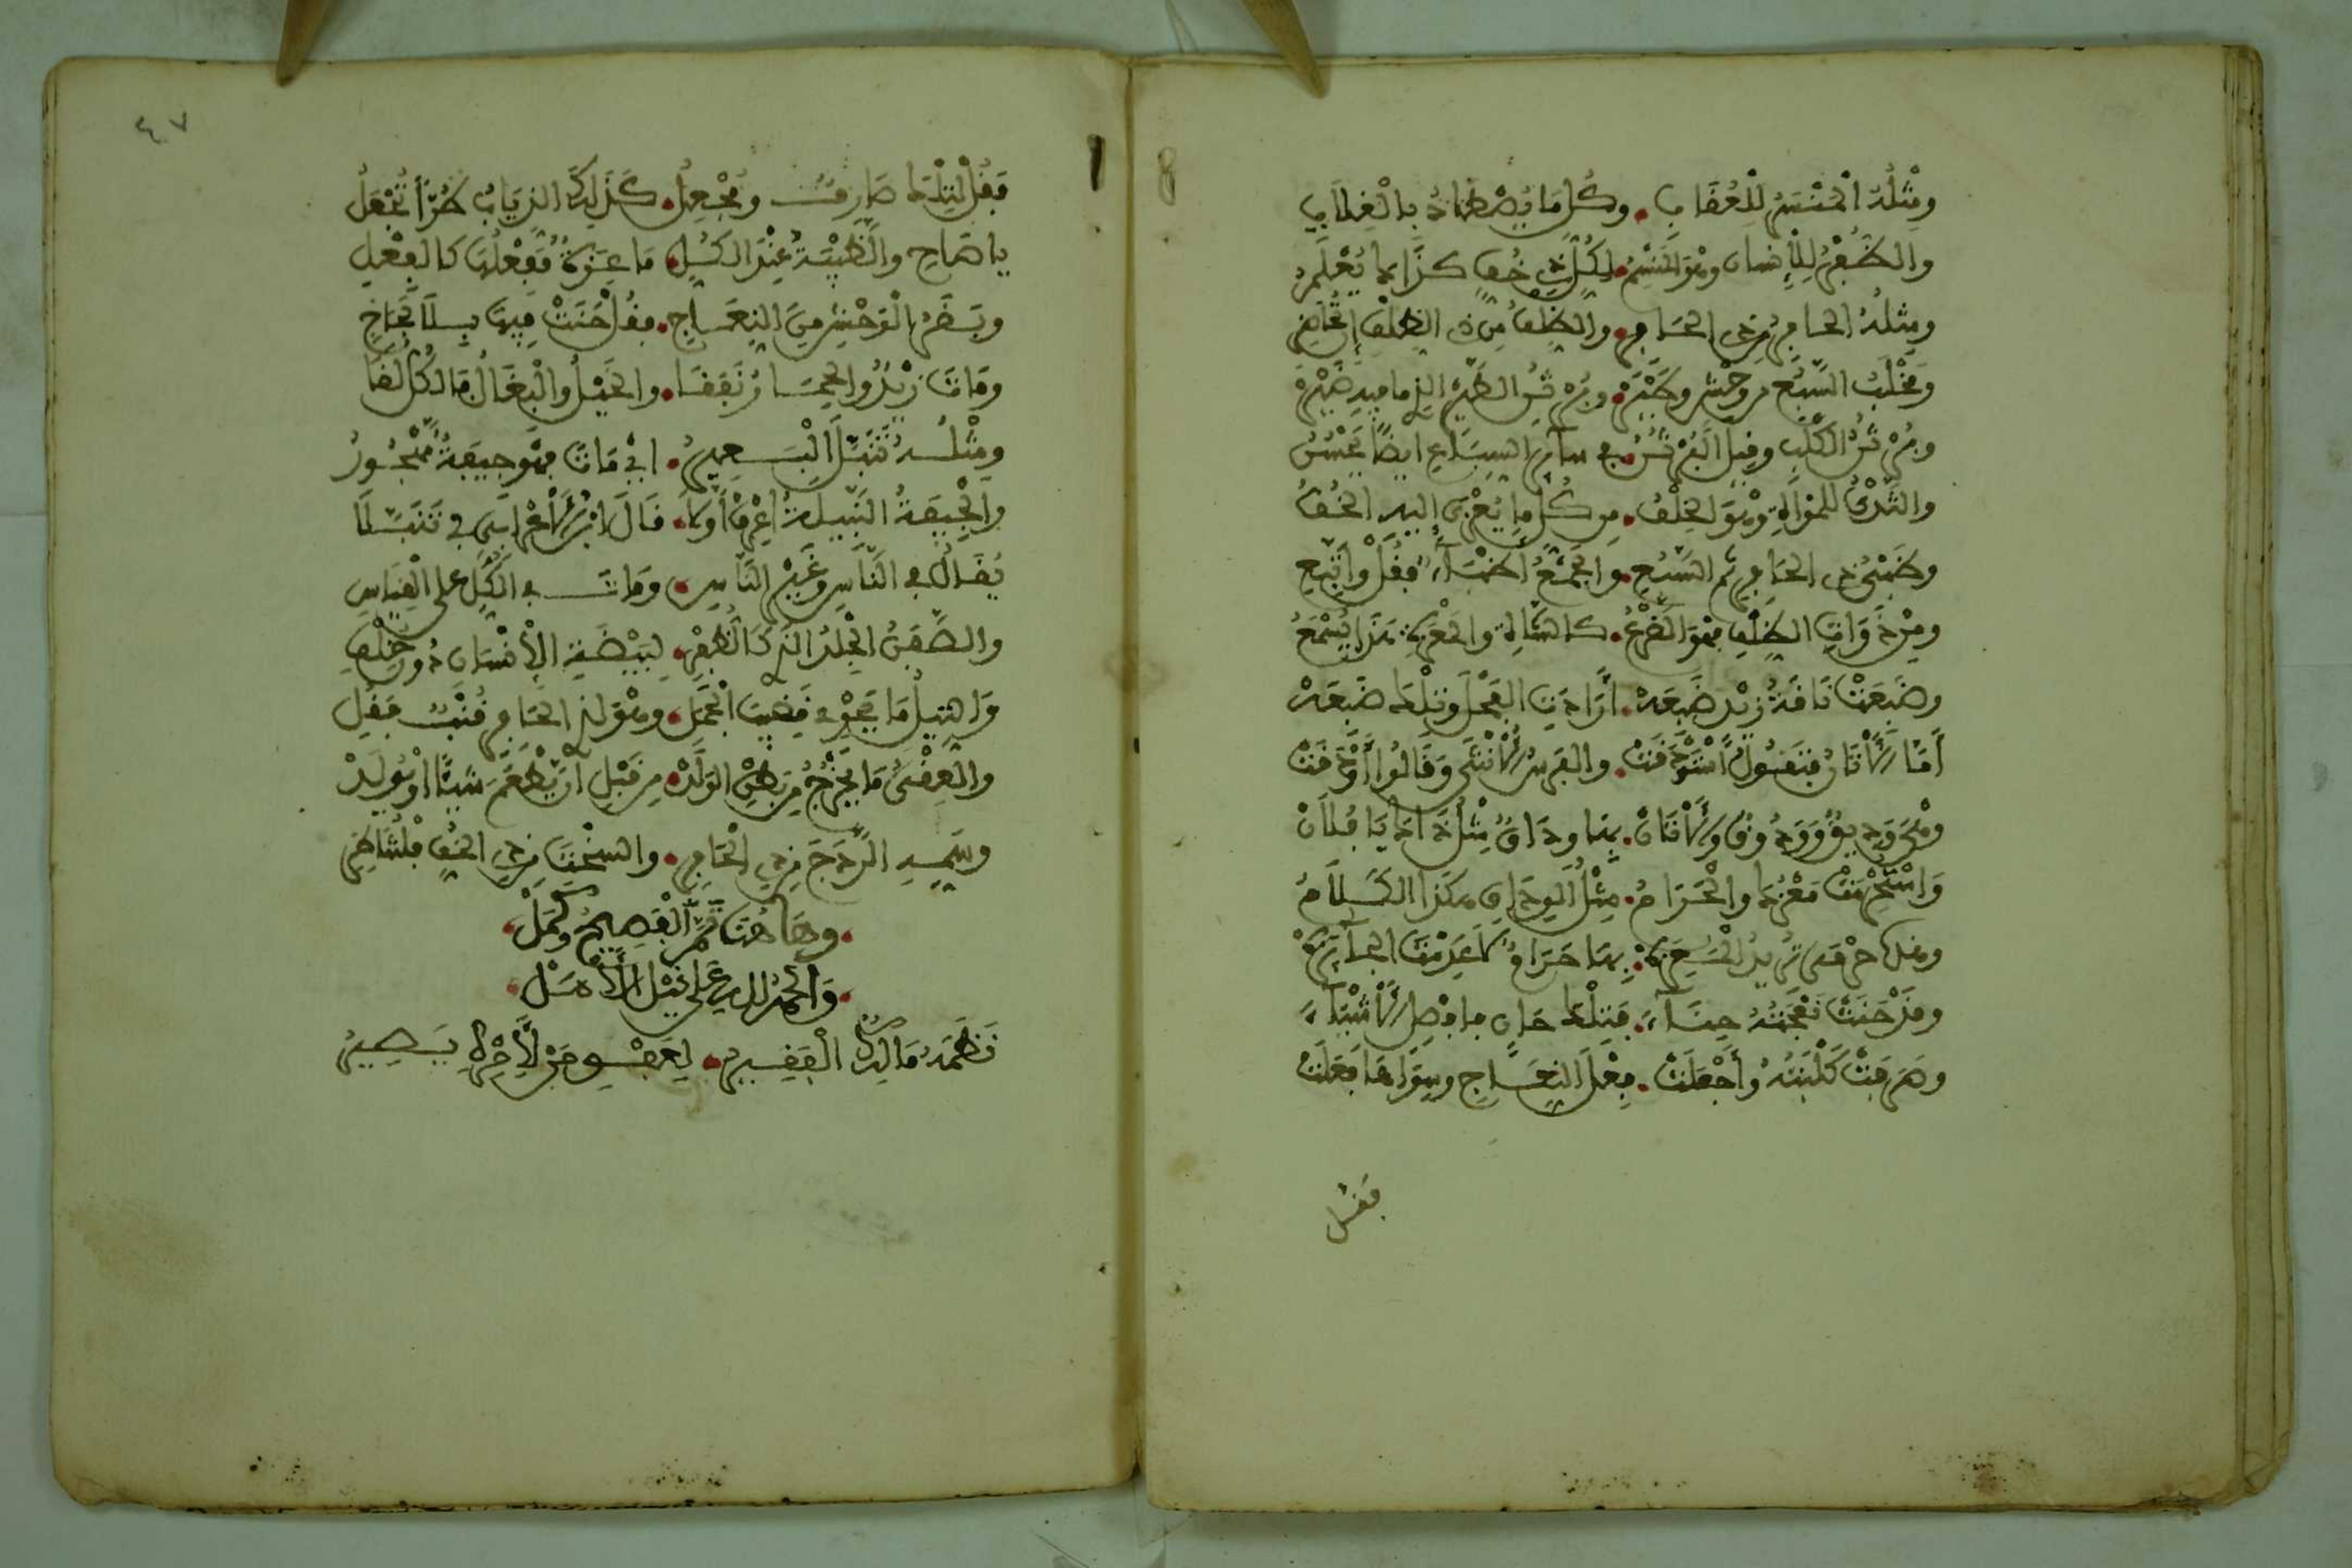 ومثله المنسر للعقاب وكل ما يصطاد بالغلاب
والظفر للإنسان وهو المنسم لكل ذي خف كذا يعلم
ومثله الحافر من ذي الحافر والظلف من ذي الظلف
ومخلب السبع من وحش وطير وبرثن الطير الذي ما فيه ضير
وبرثن الكلب وقيل البرثن في سائر السباع أيضا يحسن
والثدي للمرأة وهو الخلف من كل ما يعزى إليه الخف
وطبي ذي الحافر ثم السبع والجمع أطباء فقل واتبع
ومن ذوات الظلف فهو الضرع كالشاة والمعزة هذا يسمع
وضبعت ناقة زيد ضبعه أرادت الفحل وتلك ضبعه
أما الأتان فتقول استودقت والفرس الأنثى وقالوا أودقت
وهي وديق وودوق والأتان بها وداق مثل ذا يا فلان
واستحرمت معزهم والحرام مثل الوداق هكذا الكلام
وقل حرمى تريد الضجره بها حرام لا عدمت
وقد حنت نعجته حناء فتلك حان فافصل الأشياء
وصرفت كلبته وأجعلت فعل النعاج وسواها فعلت
فقل
٤٧
فقل لتلك صارف ومجعل كذلك الذياب طرا تجعل
يا صاح والظبية عند الكل ماعزة ففعلها كالفعل
وبقر الوحش من النعاج فقل حنت فيها بلا
ومات زيد والحمار نفقا والخيل والبغال قال لنفقا
ومثله تنبل البعير أي مات فهو جيفة مهجور
والجيفة النبيلة اعرف أولا قال ابن الأعرابي في تنبلا
يقال في الناس وغير الناس ومات في الكل على القياس
والصفن الجلد الذي كالظرف لبيضة الإنسان دون خلف
والثيل ما يحوي قضيب الجمل وهو لذي الحافر قنب فقل
والعقي ما يخرج من بطن الولد من قبل أن يطعم شيئا أو يولد
وسم الردج من ذي الحافر والسخت من ذي الخف
وها هنا تم الفصيح وكمل
والحمد لله على نيل الأمل
نظمه مالك الفقير لعفو من لأمره يصير